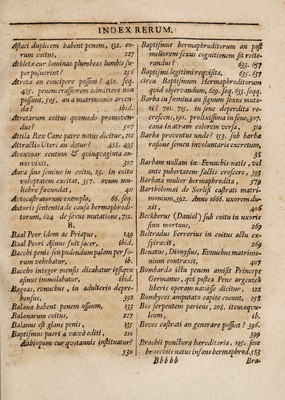 INDEX RERUM.
Astaci duplicem habent penem, 132. eorum coitus, 227
Athletæ cur laminas plumbeas lumbis superposuerint? 256
Atretæ an concipere possint? 480. seq.
485. penem crassiorem admittere non
possunt, 505. an a matrimonio arcenda?
ibid.
Atretarum coitus quomodo promovendus? 507
Attila Rex Cane patre natus dicitur, 212
Attrallis Uteri an detur? 488. 495
Aventoar centum & quinquaginta annos vixit, 307
Aura sine semine in coitu, 25. in coitu
voluptatem excitat, 357. ovum muliebre fœcundat, 411
Autocastratorum exempla, 66. seq.
Autoris sententia de causa hermaphroditorum, 624 de sexus mutatione, 712.
B.
Baal Poor idem ac Priapus, 149
Baal Peori Asinus fuit sacer, ibid.
Bacchi penis seu pudendum palam per forum vehebatur, ib.
Baccho integer mensis dicabatur ipsique
asinus immolabatur, ibid.
Bagoas, eunuchus, in adulterio deprehensus, 392
Balænæ habent penem osseum, 133
Balænarum coitus, 227
Balanus est glans penis, 135
Baptismus pueri a vacca editi, 210
Æthiopum cur quotannis instituatur?
530
Baptismus hermaphroditorum an post
meliorem sexus cognitionem sit reiterandus? 633. 657
Baptismi legitimi requisita, 635. 657
circa Baptismum Hermaphroditorum
quid observandum, 629. seq. 633. seqq.
Barba in femina an signum sexus mutati? 702. 705. in sene deperdita recrescens, 190. prolixissima in sene, 307.
cana in atram colorem versa, 310
Barba proventus unde? 153. sub barbæ
rasione semen involuntarie excretum,
35
Barbam nullam in Eunuchis natis, vel
ante pubertatem factis crescere, 395
Barbata mulier hermaphrodita, 579
Bartholomæi de Sorlis castrati matrimonium, 392. Anno 1666. uxorem duxit, 406
Beckherus (Daniel) sub coitu in uxoris
sinu mortuus, 269
Beltradus Ferrerius in coitu actu expiravit, 269
Benatus, Dionysius, Eunuchus matrimonium contraxit, 407
Bombarda ictu penem amisit Princeps
Germanus, qui postea Pene argenteo
liberis operam navasse dicitur, 122
Bombyces amputato capite coeunt, 258
Bos serpentem pariens, 205. item equuleum, ib.
Boves castrati an generare possunt? 396.
399
Brachii punctura hereditaria, 105. sine
bracchiis natus infans hermaphrod. 583
Bbbbb
Bra-